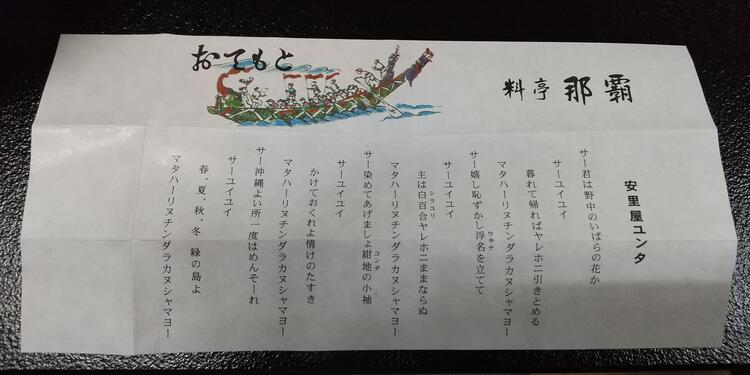 おてもと
料亭 那覇
安里屋ユンタ
サー君は野中のいばらの花か
サーユイユイ
暮れて帰ればヤレホニ引きとめる
マタハーリヌチンダラカヌシャマヨー
サー嬉し恥ずかし浮名を立てて
ウキナ
サーユイユイ
主は白百合ヤレホニままならぬ
シラユリ
マタハーリヌチンダラカヌシャマヨー
サー染めてあげましょ紺地の小袖
コンヂ
サーユイユイ
かけておくれよ情けのたすき
マタハーリヌチンダラカヌシャマヨー
サー沖縄よい所一度はめんそーれ
サーユイユイ
春、夏、秋、冬 緑の島よ
マタハーリヌチンダラカヌシャマヨー